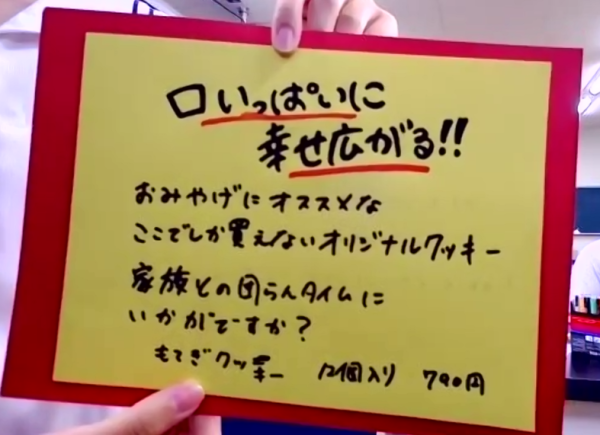 口いっぱいに
幸せ広がる!!
おみやげにオススメな
ここでしか買えないオリジナルクッキー
家族との団らんタイムに
いかがですか？
もてぎクッキー 12個入り 790円